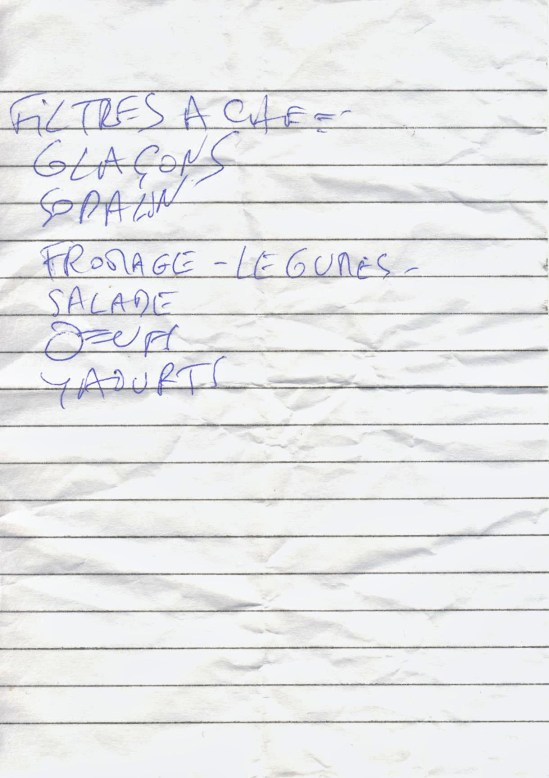 FILTRES A CAFE --
GLAÇONS
SOPALIN
FROMAGE - LEGUMES -
SALADE
OEUFS
YAOURTS